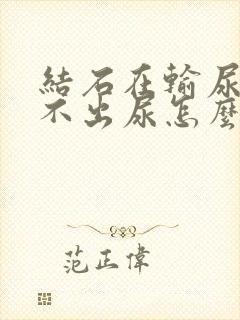 結石在輸尿
不出尿怎麼
范正偉